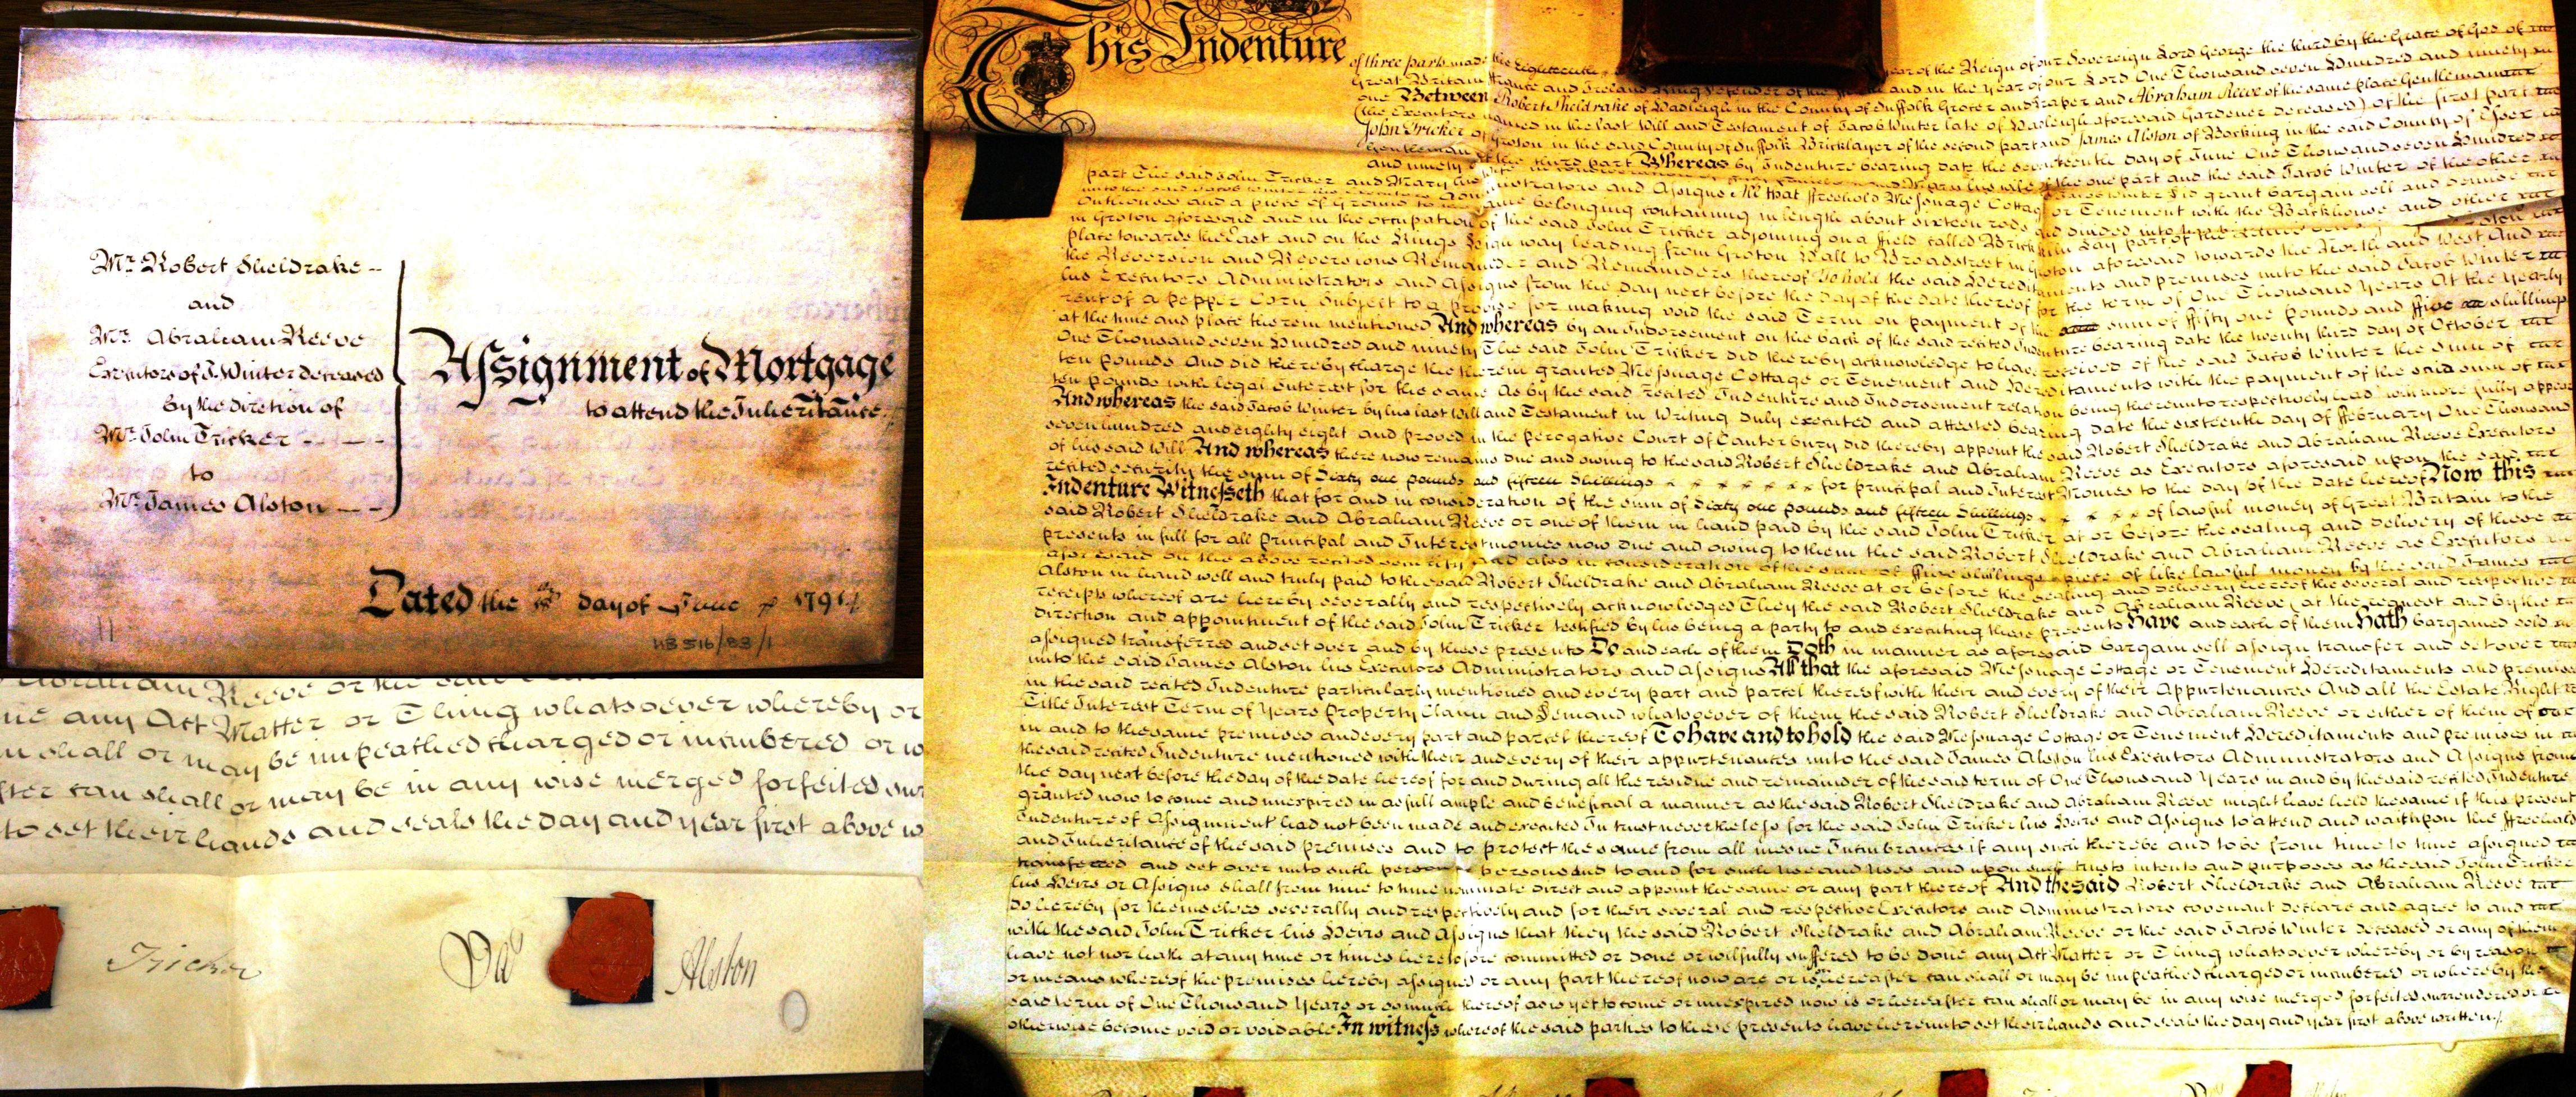 Mr. Robert Sheldrake --
and
Mr. Abraham Reeve
Executors of J. Winter deceased
by the direction of
Mr. John Tricker - - - -
to
Mr. James Alston - - -
Assignment of Mortgage
to attend the Inheritance.
Dated the day of June 179
HB 516/83/1
Abraham Reeve or the said
ne any Act Matter or Thing whatsoever whereby or
n shall or may be impeached charged or incumbered or w
fter can shall or may be in any wise merged forfeited sur
to set their hands and seals the day and year first above w
Tricker
Alston
This Indenture
of three parts made the Eighteenth year of the Reign of our Sovereign Lord George the third by the Grace of God of
Great Britain France and Ireland King Defender of the and in the year of our Lord One Thousand seven Hundred and ninety
one Between Robert Sheldrake of Hadleigh in the County of Suffolk Grocer and Draper and Abraham Reeve of the same place Gentleman
(the Executors named in the last Will and Testament of Jacob Winter late of Hadleigh aforesaid Gardener deceased) of the first part
John Tricker of Groton in the said County of Suffolk Bricklayer of the second part and James Alston of Bocking in the said County of Essex
Gentleman of the third part Whereas by Indenture bearing date the seventeenth day of June One Thousand seven Hundred
and ninety the one part and the said Jacob Winter of the other
part The said John Tricker and Mary his wife Jacob Winter Did grant bargain sell and demise
unto the said Jacob Winter his Executors Administrators and Assigns All that ffreehold Messuage Cottage or Tenement with the Backhouse and other
Outhouses and a piece of Ground to the same belonging containing in length about sixteen rods and divided into
in Groton aforesaid and in the occupation of the said John Tricker adjoining on a ffield called Brick part of the
place towards the East and on the Kings High way leading from Groton Wall to Broadstreet in Groton aforesaid towards the North and West And
the Reversion and Reversions Remainder and Remainders thereof To hold the said Hereditaments and premises unto the said Jacob Winter
his Executors Administrators and Assigns from the day next before the day of the date thereof for the term of One Thousand Years At the yearly
rent of a pepper Corn Subject to a proviso for making void the said Term on payment of the sum of ffifty one pounds and ffive shillings
at the time and place therein mentioned And whereas by an Indorsement on the back of the said recited Indenture bearing date the twenty third day of October
One Thousand seven Hundred and ninety The said John Tricker did thereby acknowledge to have received of the said Jacob Winter the Sum of
ten pounds And did thereby charge the therein granted Messuage Cottage or Tenement and Hereditaments with the payment of the said sum of
ten pounds with legal interest for the same As by the said recited Indenture and Indorsement relation being thereunto respectively had will more fully appear
And whereas the said Jacob Winter by his last Will and Testament in Writing duly executed and attested bearing date the sixteenth day of ffebruary One Thousand
seven hundred and eighty eight and proved in the Perogative Court of Canterbury did thereby appoint the said Robert Sheldrake and Abraham Reeve Executors
of his said Will And whereas there now remains due and owing to the said Robert Sheldrake and Abraham Reeve as Executors aforesaid upon the said
recited security the sum of Sixty one pounds and fifteen Shillings for principal and Interest Monies to the day of the date hereof Now this
Indenture Witnesseth that for and in consideration of the sum of Sixty one pounds and fifteen Shillings of lawful money of Great Britain to the
said Robert Sheldrake and Abraham Reeve or one of them in hand paid by the said John Tricker at or before the sealing and delivery of these
presents in full for all Principal and Interest monies now due and owing to them the said Robert Sheldrake and Abraham Reeve as Executors
aforesaid on the above recited security And also in consideration of the sum of ffive shillings apiece of like lawful money by the said James
Alston in hand well and truly paid to the said Robert Sheldrake and Abraham Reeve at or before the sealing and delivery hereof the several and respective
receipts whereof are hereby severally and respectively acknowledged They the said Robert Sheldrake and Abraham Reeve (at the request and by the
direction and appointment of the said John Tricker testified by his being a party to and executing these presents Have and each of them Hath bargained sold
assigned transferred and set over and by these presents Do and each of them Doth in manner as aforesaid bargain sell assign transfer and set over
unto the said James Alston his Executors Administrators and Assigns All that the aforesaid Messuage Cottage or Tenement Hereditaments and premises
in the said recited Indenture particularly mentioned and every part and parcel thereof with their and every of their Appurtenances And all the Estate Right
Title Interest Term of Years Property Claim and Demand whatsoever of them the said Robert Sheldrake and Abraham Reeve or either of them of
in and to the same premises and every part and parcel thereof To have and to hold the said Messuage Cottage or Tenement Hereditaments and premises in
the said recited Indenture mentioned with their and every of their appurtenances unto the said James Alston his Executors Administrators and Assigns from
the day next before the day of the date hereof for and during all the residue and remainder of the said term of One Thousand Years in and by the said recited Indenture
granted now to come and unexpired in as full ample and beneficial a manner as the said Robert Sheldrake and Abraham Reeve might have held the same if this present
Indenture of Assignment had not been made and executed In trust nevertheless for the said John Tricker his Heirs and Assigns to attend and wait upon the ffreehold
and Inheritance of the said premises and to protect the same from all mesne Incumbrances if any such there be and to be from time to time assigned
transferred and set over unto such person persons and to and for such Use and Uses and upon such trusts intents and purposes as the said John Tricker
his Heirs or Assigns shall from time to time nominate direct and appoint the same or any part thereof And the said Robert Sheldrake and Abraham Reeve
do hereby for themselves severally and respectively and for their several and respective Executors and Administrators covenant declare and agree to and
with the said John Tricker his Heirs and Assigns that they the said Robert Sheldrake and Abraham Reeve or the said Jacob Winter deceased or any of them
have not nor hath at any time or times heretofore committed or done or wilfully suffered to be done any Act Matter or Thing whatsoever whereby or by reason
or means whereof the premises hereby assigned or any part thereof now are or is hereafter can shall or may be impeached charged or incumbered or whereby the
said term of One Thousand Years or so much thereof as is yet to come or unexpired now is or hereafter can shall or may be in any wise merged forfeited surrendered or
otherwise become void or voidable In witness whereof the said parties to these presents have hereunto set their hands and seals the day and year first above written